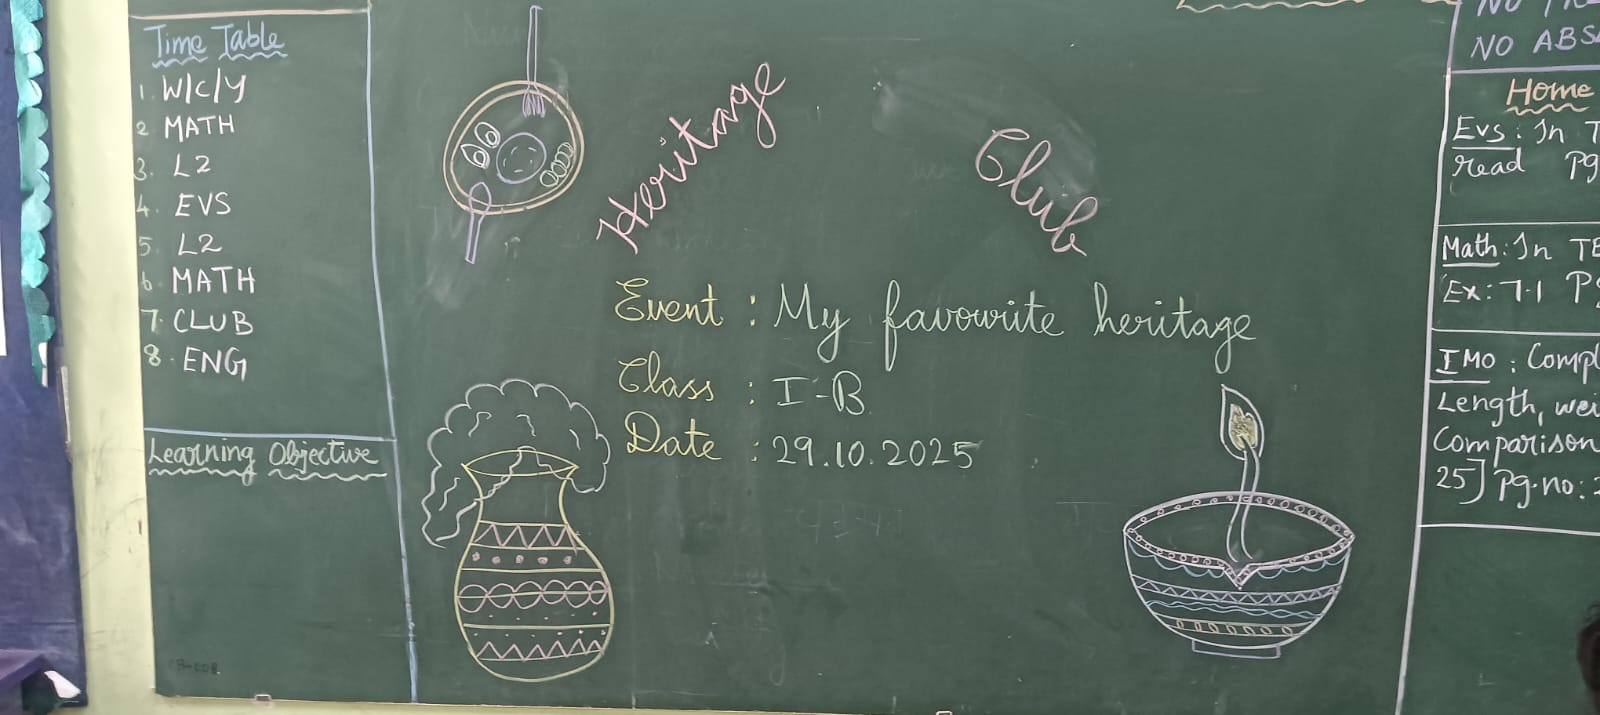 Time Table
1. W/C/Y
2 MATH
3. L2
4. EVS
5. L2
6. MATH
7. CLUB
8. ENG
Learning Objective
Heritage Club
Event : My favourite heritage
Class : I-B
Date : 29.10.2025
NO
NO ABS
Home
Evs: In T
read Pg
Math: In TB
Ex: 7.1 Pg
IMO : Compl
Length, wei
Comparison
25] Pg.no: